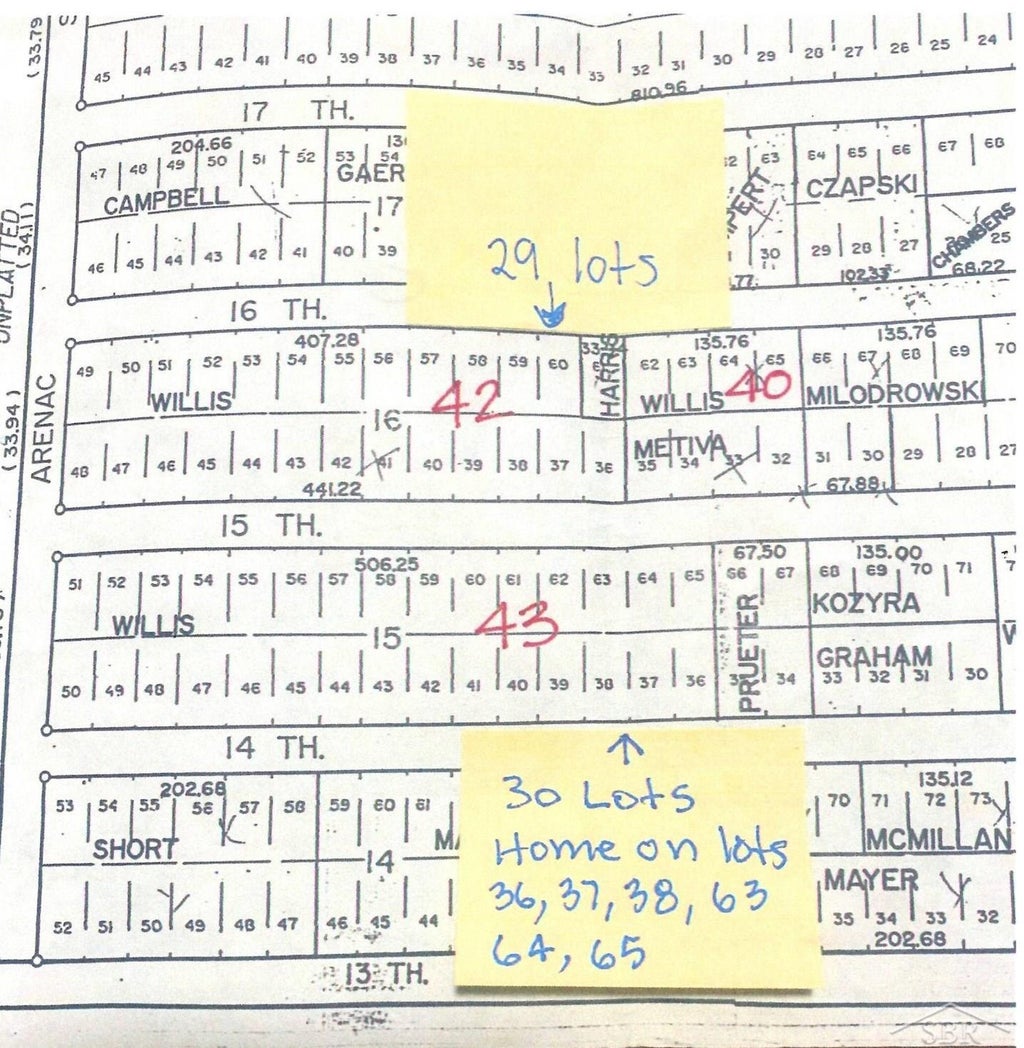 (33.79
45 44 43 42 41 40 39 38 37 36 35 34 33 32 31 30 29 28 27 26 25 24
810.96
17 TH.
204.66
48 49 50 51 52 53 54 63 64 65 66 67 68
CAMPBELL GAER CZAPSKI
17
CHAMBERS
46 45 44 43 42 41 40 39 30 29 28 27 25
102.33 68.22
29 lots
UNPLATTED
(34.11)
16 TH.
407.28 135.76 135.76
49 50 51 52 53 54 55 56 57 58 59 60 62 63 64 65 66 67 68 69 70
HARRIS
WILLIS 42 WILLIS 40 MILODROWSKI
16
METIVA
48 47 46 45 44 43 42 41 40 39 38 37 36 35 34 33 32 31 30 29 28 27
441.22 67.88
(33.94)
ARENAC
15 TH.
506.25 67.50 135.00
51 52 53 54 55 56 57 58 59 60 61 62 63 64 65 66 67 68 69 70 71
WILLIS 43 KOZYRA
15
PRUETER
GRAHAM
50 49 48 47 46 45 44 43 42 41 40 39 38 37 36 35 34 33 32 31 30
14 TH.
202.68 135.12
53 54 55 56 57 58 59 60 61 70 71 72 73
SHORT MCMILLAN
14
MAYER
52 51 50 49 48 47 46 45 44 35 34 33 32
202.68
30 Lots
Home on lots
36, 37, 38, 63
64, 65
13 TH.
SBR